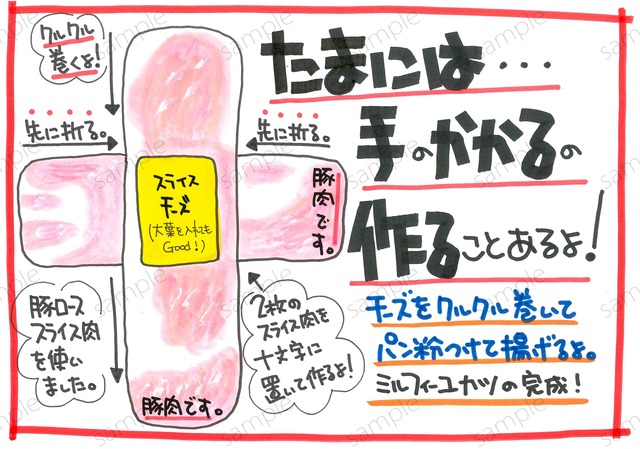 クルクル
巻くよ!
たまには・・・
手のかかるの
作ることあるよ!
先に折る。
先に折る。
スライス
チーズ
(大葉を入れても
Good!)
豚肉です。
豚ロース
スライス肉
を使い
ました。
2枚の
スライス肉を
十文字に
置いて作るよ!
豚肉です。
チーズをクルクル巻いて
パン粉つけて揚げるよ。
ミルフィーユカツの完成!
sample